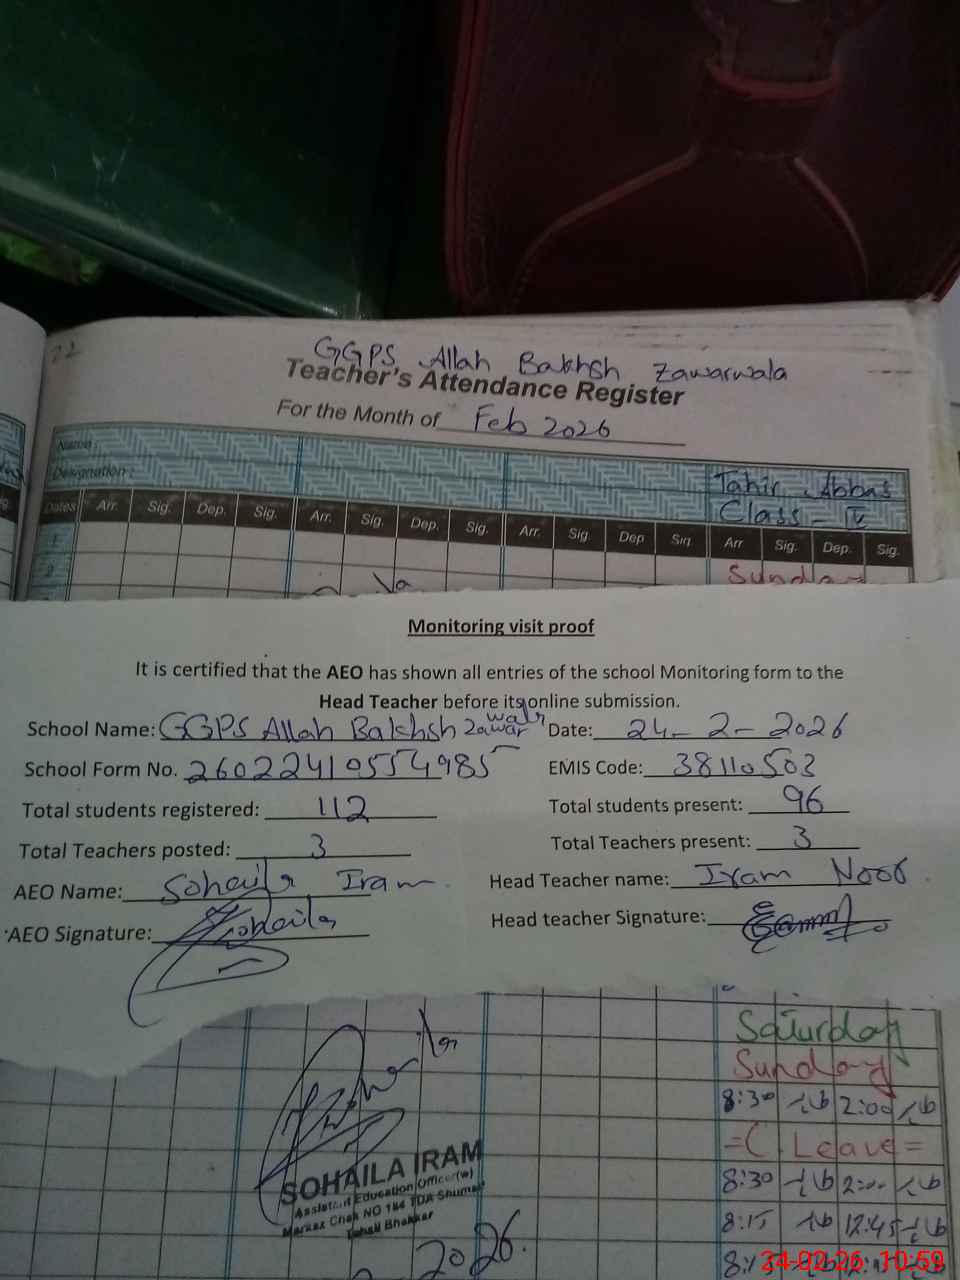 22
GGPS Allah Bakhsh Zawarwala
Teacher's Attendance Register
For the Month of Feb 2026
Name :
Designation : Tahir Abbas
Class - IV
Dates Arr. Sig. Dep. Sig. Arr. Sig. Dep. Sig. Arr. Sig. Dep Sig Arr Sig. Dep. Sig.
1
2 Sunday
Monitoring visit proof
It is certified that the AEO has shown all entries of the school Monitoring form to the
Head Teacher before its online submission.
School Name: GGPS Allah Bakhsh Zawar wala Date: 24-2-2026
School Form No. 26022410554985 EMIS Code: 38110503
Total students registered: 112 Total students present: 96
Total Teachers posted: 3 Total Teachers present: 3
AEO Name: Sohaila Iram. Head Teacher name: Iram Noor.
AEO Signature: Sohaila Head teacher Signature:
Saturday
Sunday
8:30 2:00
=C. Leave=
8:30 2:00
8:15 12:45
8:15
SOHAILA IRAM
Assistant Education Officer(w)
Markaz Chak NO 184 TDA Shumali
Tehsil Bhakkar
2026.
24-02-26 10:59